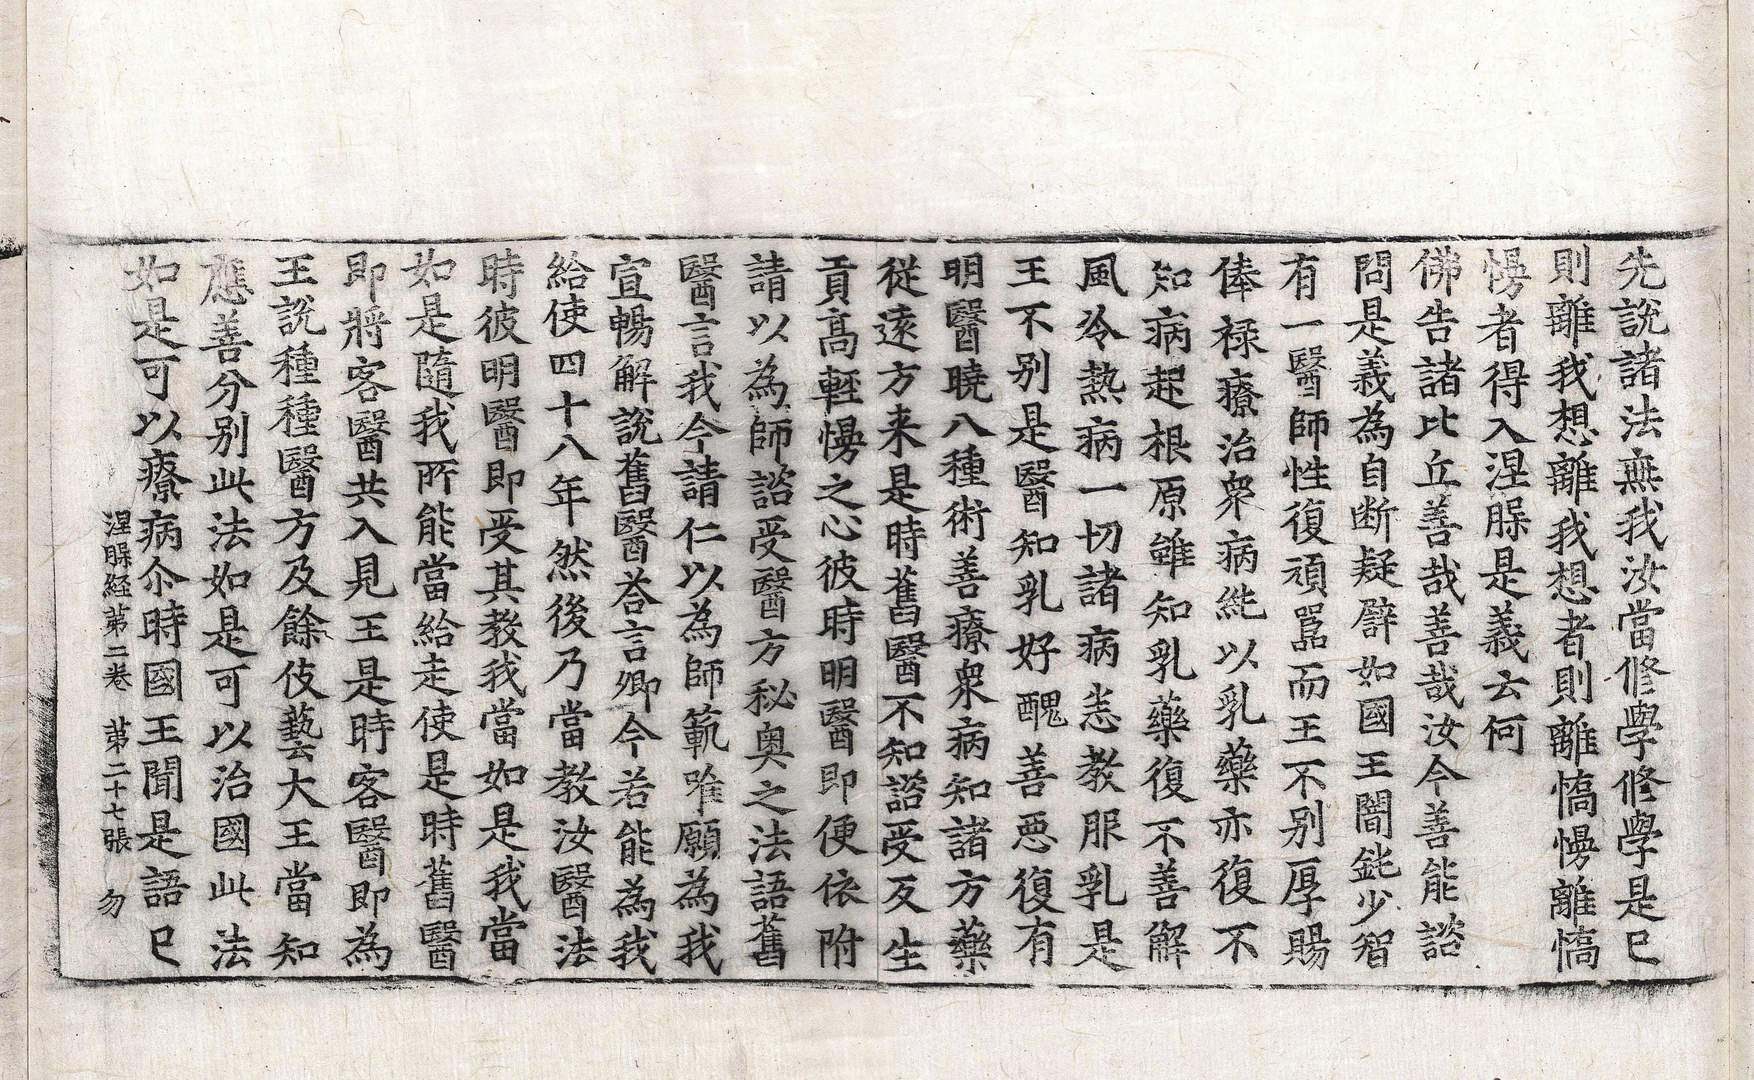 先說諸法無我汝當修學修學是已
則離我想離我想者則離憍慢離憍
慢者得入涅槃是義云何
佛告諸比丘善哉善哉汝今善能諮
問是義為自断疑譬如國王闇鈍少智
有一醫師性復頑嚚而王不別厚賜
俸祿療治衆病純以乳藥亦復不
知病起根原雖知乳藥復不善解
風冷熱病一切諸病悉教服乳是
王不別是醫知乳好醜善惡復有
明醫曉八種術善療衆病知諸方藥
從遠方来是時舊醫不知諮受反生
貢高輕慢之心彼時明醫即便依附
請以為師諮受醫方秘奥之法語舊
醫言我今請仁以為師範唯願為我
宣暢解說舊醫荅言卿今若能為我
給使四十八年然後乃當教汝醫法
時彼明醫即受其教我當如是我當
如是隨我所能當給走使是時舊醫
即將客醫共入見王是時客醫即為
王說種種醫方及餘伎藝大王當知
應善分別此法如是可以治國此法
如是可以療病尒時國王聞是語已
涅槃経苐二卷 苐二十七張 勿